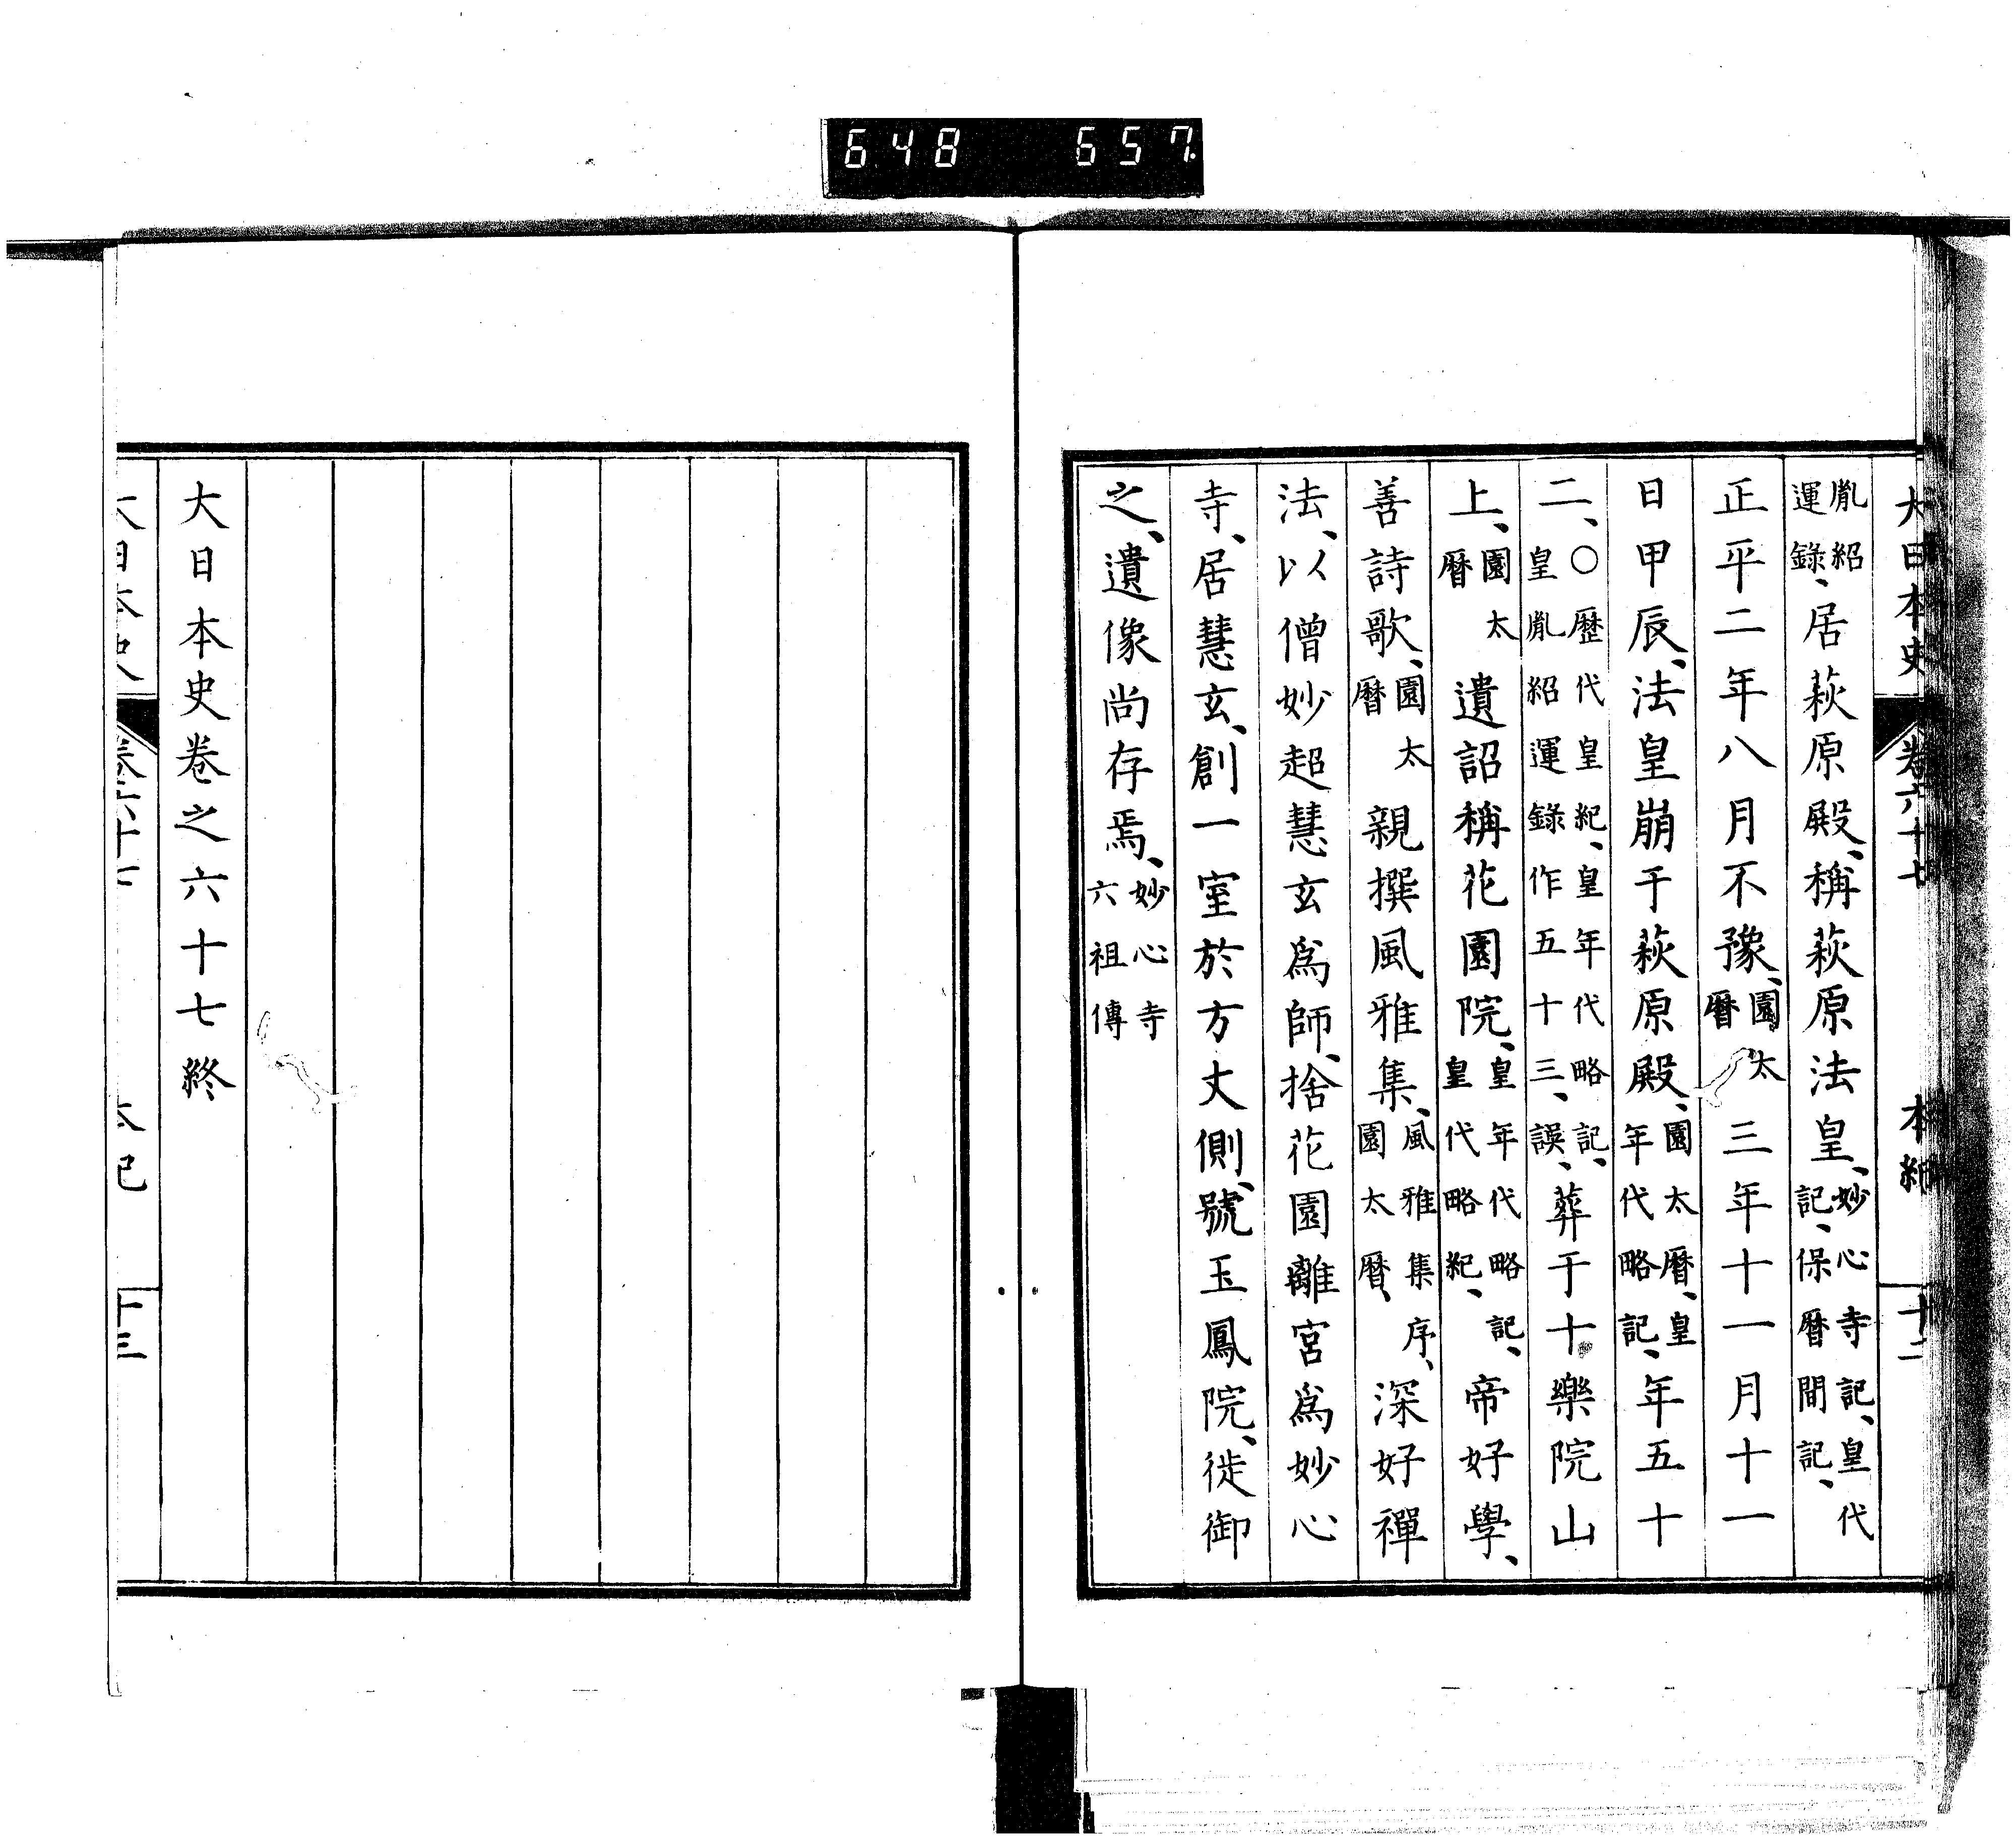 648 657
大日本史 卷六十七 本紀 十二
胤紹運錄、居萩原殿、稱萩原法皇、妙心寺記、皇代記、保曆間記、
正平二年八月不豫、園太曆三年十一月十一
日甲辰、法皇崩于萩原殿、園太曆、皇年代略記、年五十
二、○歷代皇紀、皇年代略記、皇胤紹運錄作五十三、誤、葬于十樂院山
上、園太曆遺詔稱花園院、皇年代略記、皇代略紀、帝好學、
善詩歌、園太曆親撰風雅集、風雅集序、園太曆、深好禪
法、以僧妙超慧玄爲師、捨花園離宮爲妙心
寺、居慧玄、創一室於方丈側、號玉鳳院、徙御
之、遺像尚存焉、妙心寺六祖傳
大日本史卷之六十七終
大日本史 卷六十七 本紀 十三